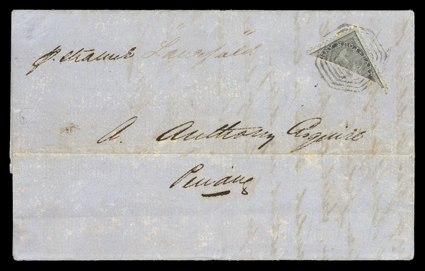 p. Steamer "Lancefield"
A. Anthony Esquire
Penang